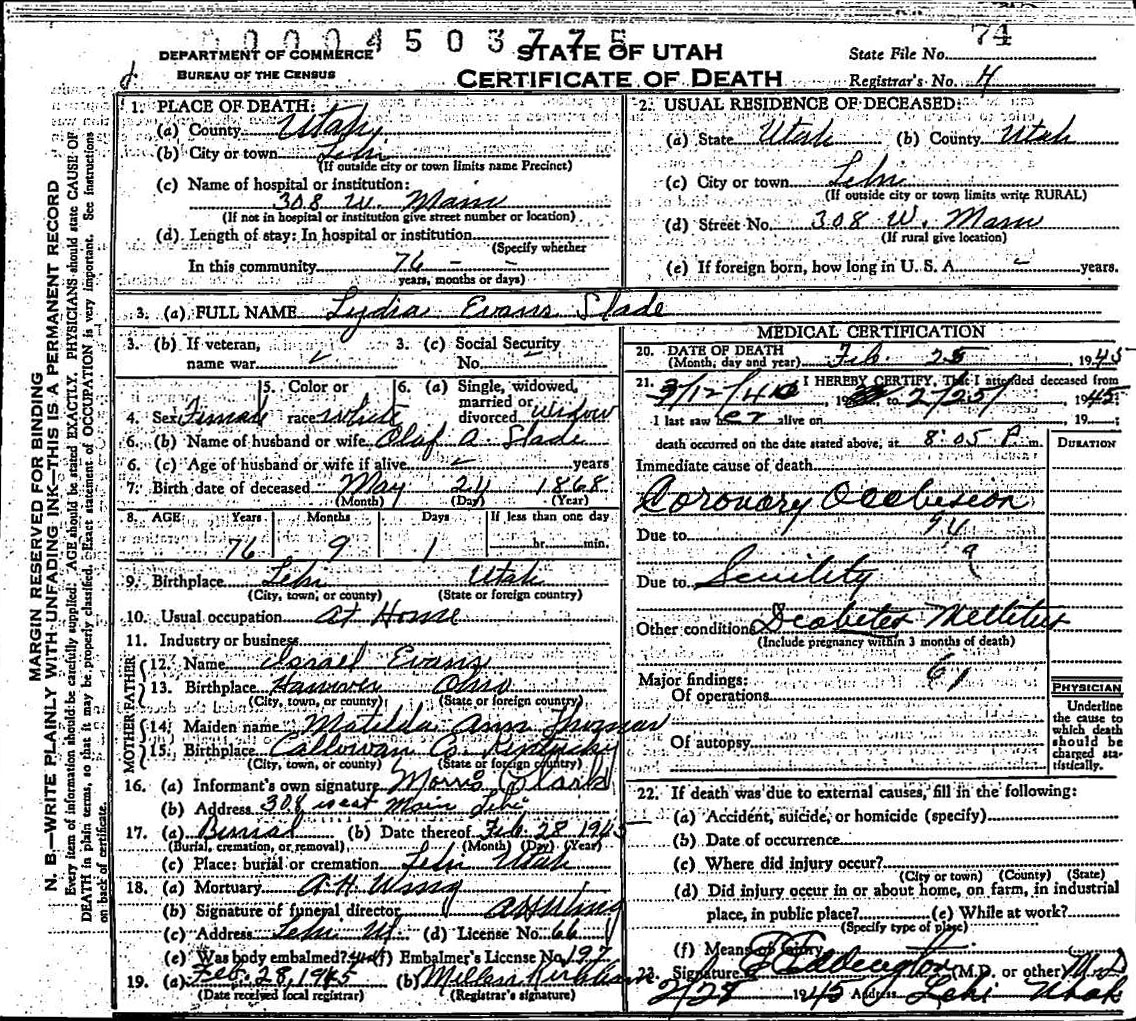 0 0 0 0 4 5 0 3 7 7 5
74
DEPARTMENT OF COMMERCE
BUREAU OF THE CENSUS
STATE OF UTAH
CERTIFICATE OF DEATH
State File No.
Registrar's No. 4
MARGIN RESERVED FOR BINDING
N. B.—WRITE PLAINLY WITH UNFADING INK—THIS IS A PERMANENT RECORD
Every item of information should be carefully supplied. AGE should be stated EXACTLY. PHYSICIANS should state CAUSE OF
DEATH in plain terms, so that it may be properly classified. Exact statement of OCCUPATION is very important. See instructions
on back of certificate.
1. PLACE OF DEATH:
(a) County Utah
(b) City or town Lehi
(If outside city or town limits name Precinct)
(c) Name of hospital or institution:
308 W. Main
(If not in hospital or institution give street number or location)
(d) Length of stay: In hospital or institution
(Specify whether
In this community 76 - -
years, months or days)
2. USUAL RESIDENCE OF DECEASED:
(a) State Utah (b) County Utah
(c) City or town Lehi
(If outside city or town limits write RURAL)
(d) Street No. 308 W. Main
(If rural give location)
(e) If foreign born, how long in U. S. A. - years.
3. (a) FULL NAME Lydia Evans Slade
3. (b) If veteran, name war
3. (c) Social Security No.
4. Sex Female
5. Color or race white
6. (a) Single, widowed, married or divorced widow
6. (b) Name of husband or wife Olaf A. Slade
6. (c) Age of husband or wife if alive years
7. Birth date of deceased May 24 1868
(Month) (Day) (Year)
8. AGE Years Months Days If less than one day
76 9 1 hr. min.
9. Birthplace Lehi Utah
(City, town, or county) (State or foreign country)
10. Usual occupation At Home
11. Industry or business
FATHER
12. Name Israel Evans
13. Birthplace Hanover Ohio
(City, town, or county) (State or foreign country)
MOTHER
14. Maiden name Matilda Ann Thomas
15. Birthplace Callowan Co. Kentucky
(City, town, or county) (State or foreign country)
16. (a) Informant's own signature Morris Clark
(b) Address 308 west Main Lehi
17. (a) Burial (b) Date thereof Feb. 28 1945
(Burial, cremation, or removal) (Month) (Day) (Year)
(c) Place: burial or cremation Lehi Utah
18. (a) Mortuary A. H. Wing
(b) Signature of funeral director A H Wing
(c) Address Lehi Ut. (d) License No. 66
(e) Was body embalmed? (f) Embalmer's License No. 197
19. (a) Feb. 28, 1945 (b)
(Date received local registrar) (Registrar's signature)
MEDICAL CERTIFICATION
20. DATE OF DEATH
(Month, day and year) Feb. 25, 1945
21. I HEREBY CERTIFY, That I attended deceased from
3/12/40, 19 to 2/25/, 1945;
I last saw her alive on , 19 ;
death occurred on the date stated above, at 8:05 P. m.
DURATION
Immediate cause of death
Coronary Occlusion
94
Due to
a
Due to Senility
Other conditions Diabetes Mellitus
(Include pregnancy within 3 months of death)
61
Major findings:
Of operations
Of autopsy
PHYSICIAN
Underline
the cause to
which death
should be
charged sta-
tistically.
22. If death was due to external causes, fill in the following:
(a) Accident, suicide, or homicide (specify)
(b) Date of occurrence
(c) Where did injury occur?
(City or town) (County) (State)
(d) Did injury occur in or about home, on farm, in industrial
place, in public place? (e) While at work?
(Specify type of place)
(f) Means of injury
23. Signature E Eddington (M.D. or other) M.D
2/28 1945 Address Lehi Utah